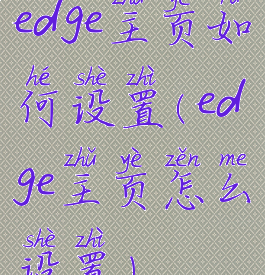 edge主页如
hé shè zhì
何设置(ed
zhǔ yè zěn me
ge主页怎么
shè zhì
设置)